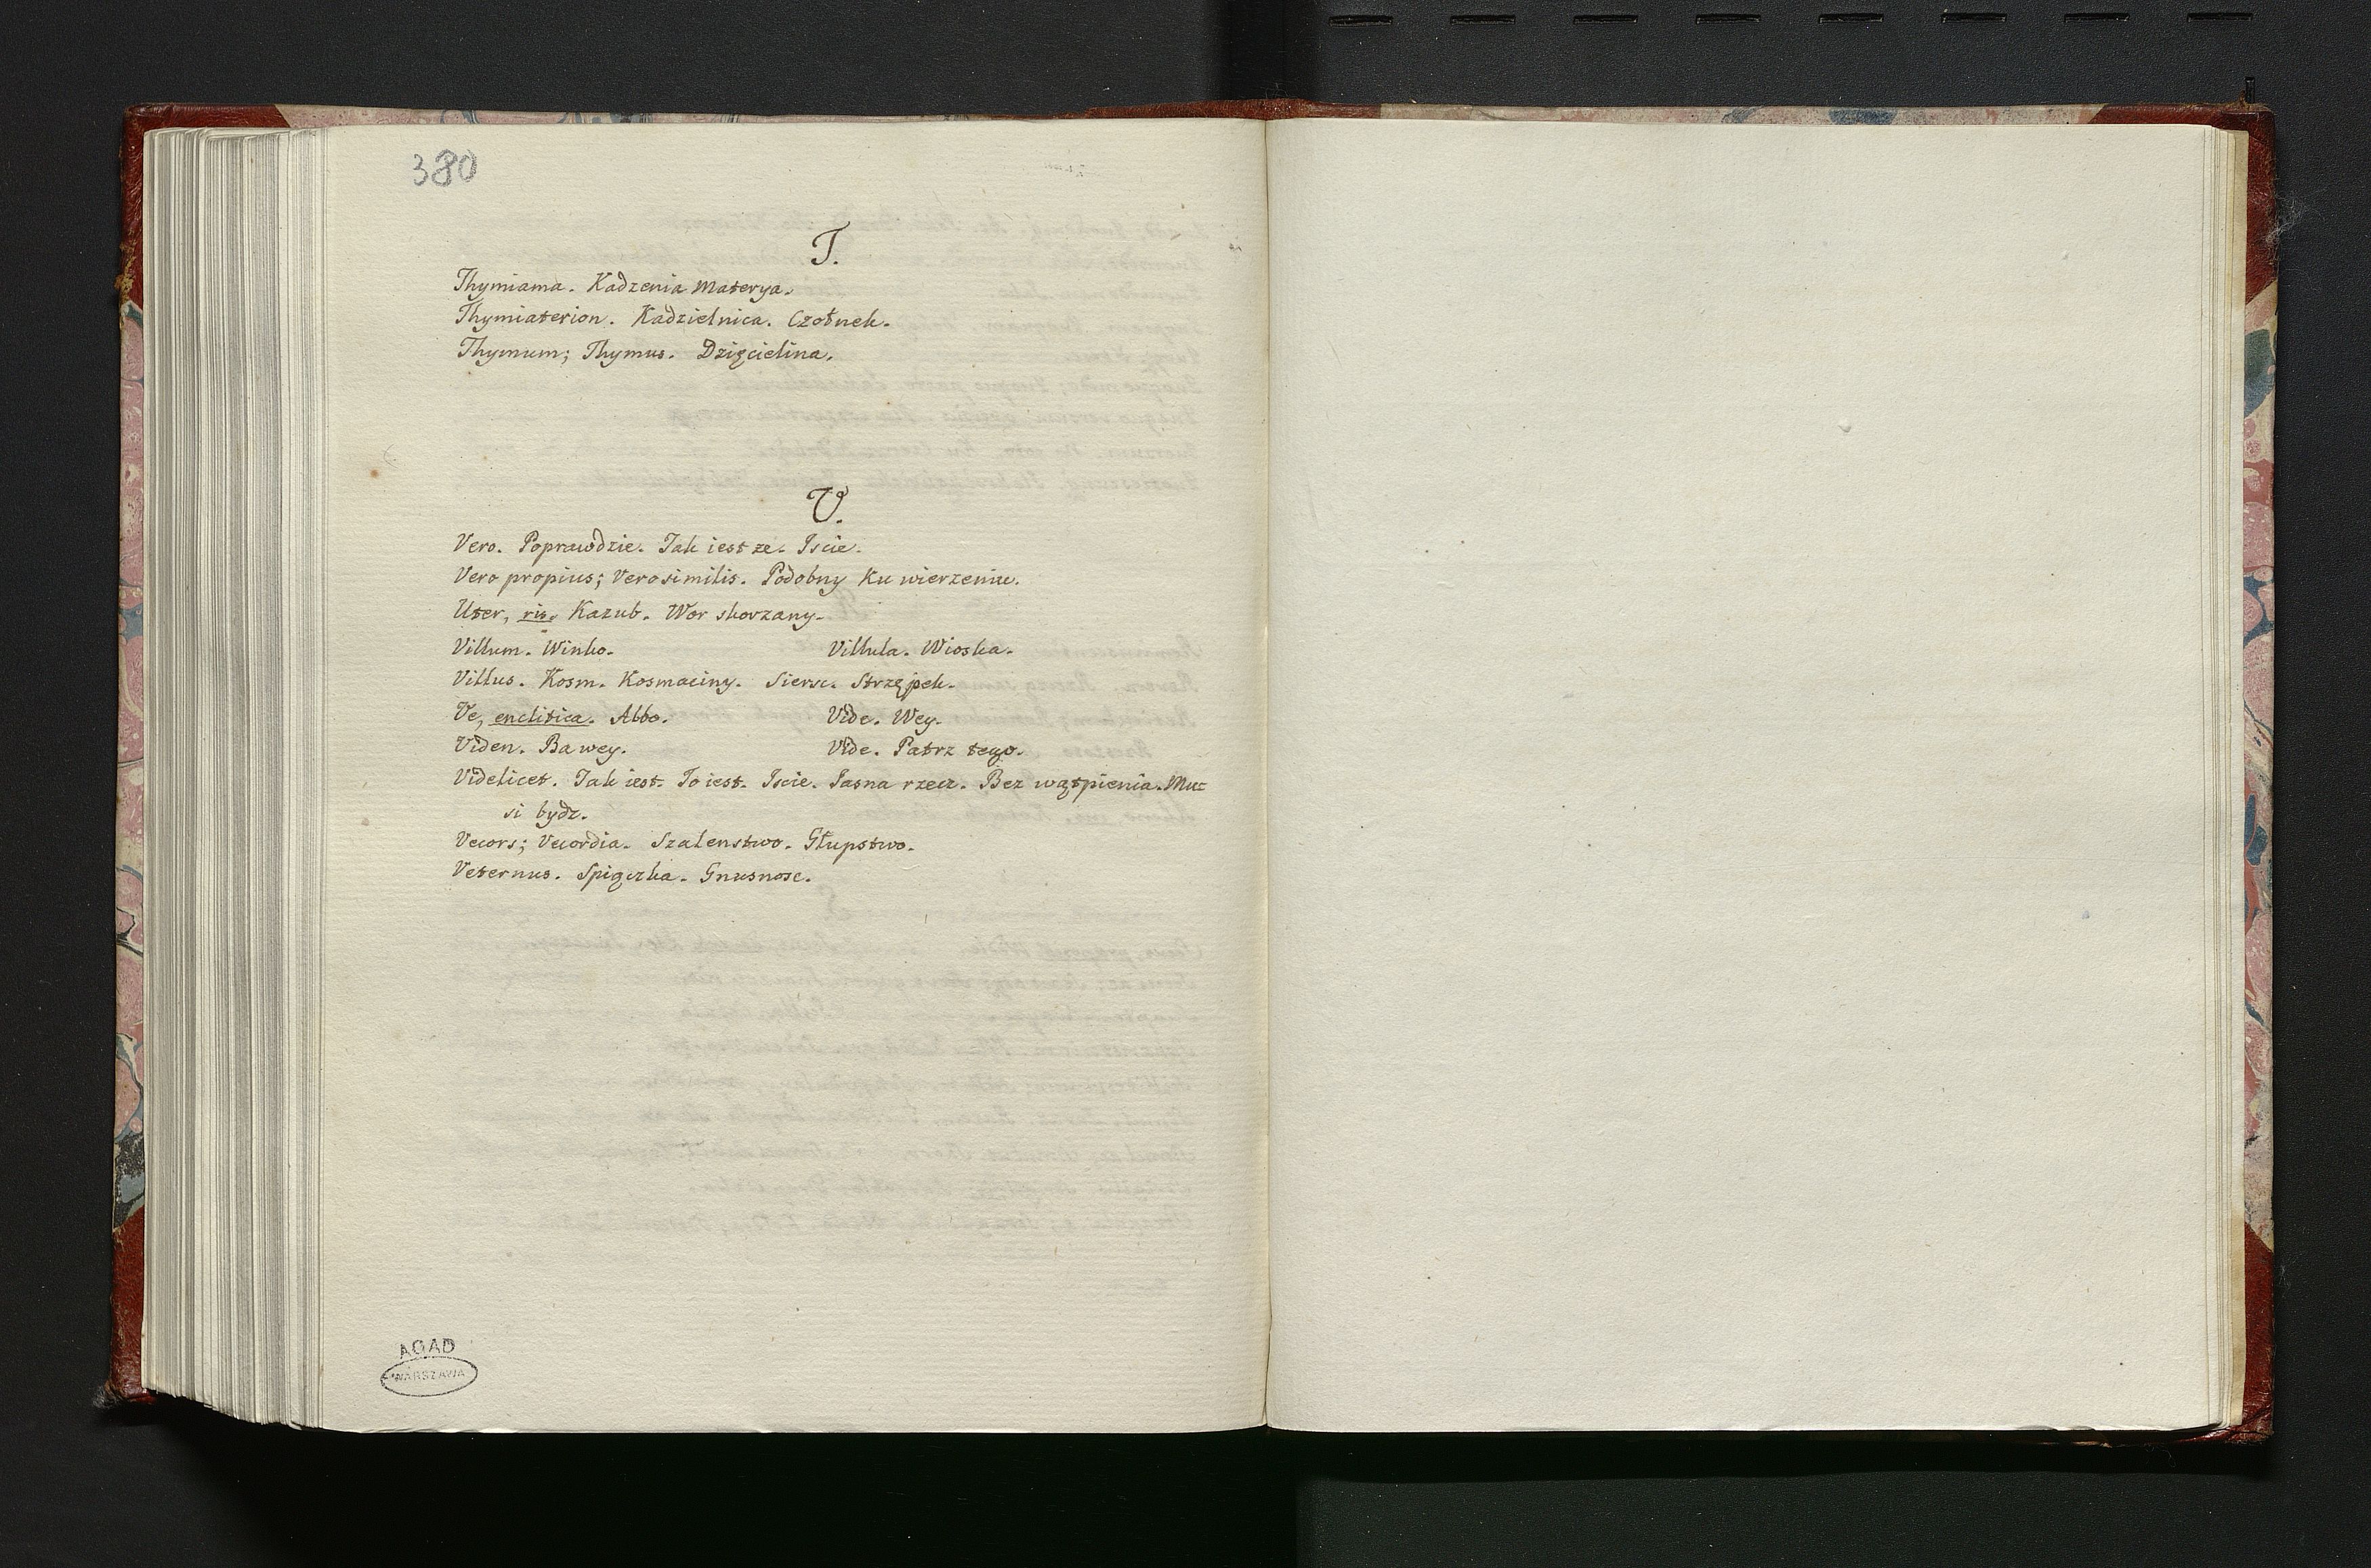 380
T.
Thymiama. Kadzenia Materya.
Thymiaterion. Kadzielnica. Czołnek.
Thymum; Thymus. Dzięcielina.
V.
Vero. Poprawdzie. Tak iest ze. Iscie.
Vero propius; verosimilis. Podobny Ku wierzeniu.
Uter, ris. Kazub. Wor skorzany.
Villum. Winko. Villula. Wioska.
Villus. Kosm. Kosmaciny. Siersc. Strzępek.
Ve, enclitica. Albo. Vide. Wey.
Viden. Ba wey. Vide. Patrz tego.
Videlicet. Tak iest. To iest. Iscie. Iasna rzecz. Bez wątpienia. Mu=
si bydz.
Vecors; Vecordia. Szalenstwo. Głupstwo.
Veternus. Spiączka. Gnusnosc.
AGAD
WARSZAWA